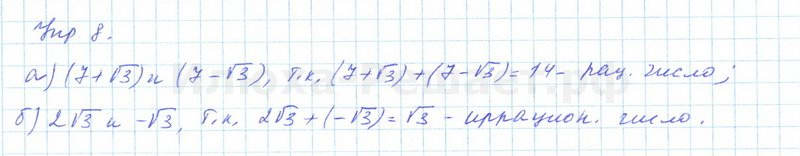 Упр 8.
а) (7+√3) и (7-√3), т.к. (7+√3)+(7-√3)=14- рац. число;
б) 2√3 и -√3, т.к. 2√3+(-√3)=√3 - иррацион. число.